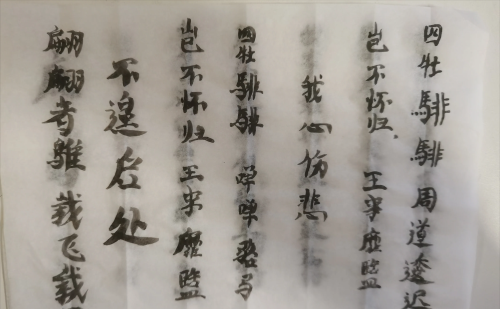 四牡騑騑 周道逶迟
岂不怀归 王事靡盬
我心伤悲
四牡騑騑 啴啴骆马
岂不怀归 王事靡盬
不遑启处
翩翩者鵻 载飞载